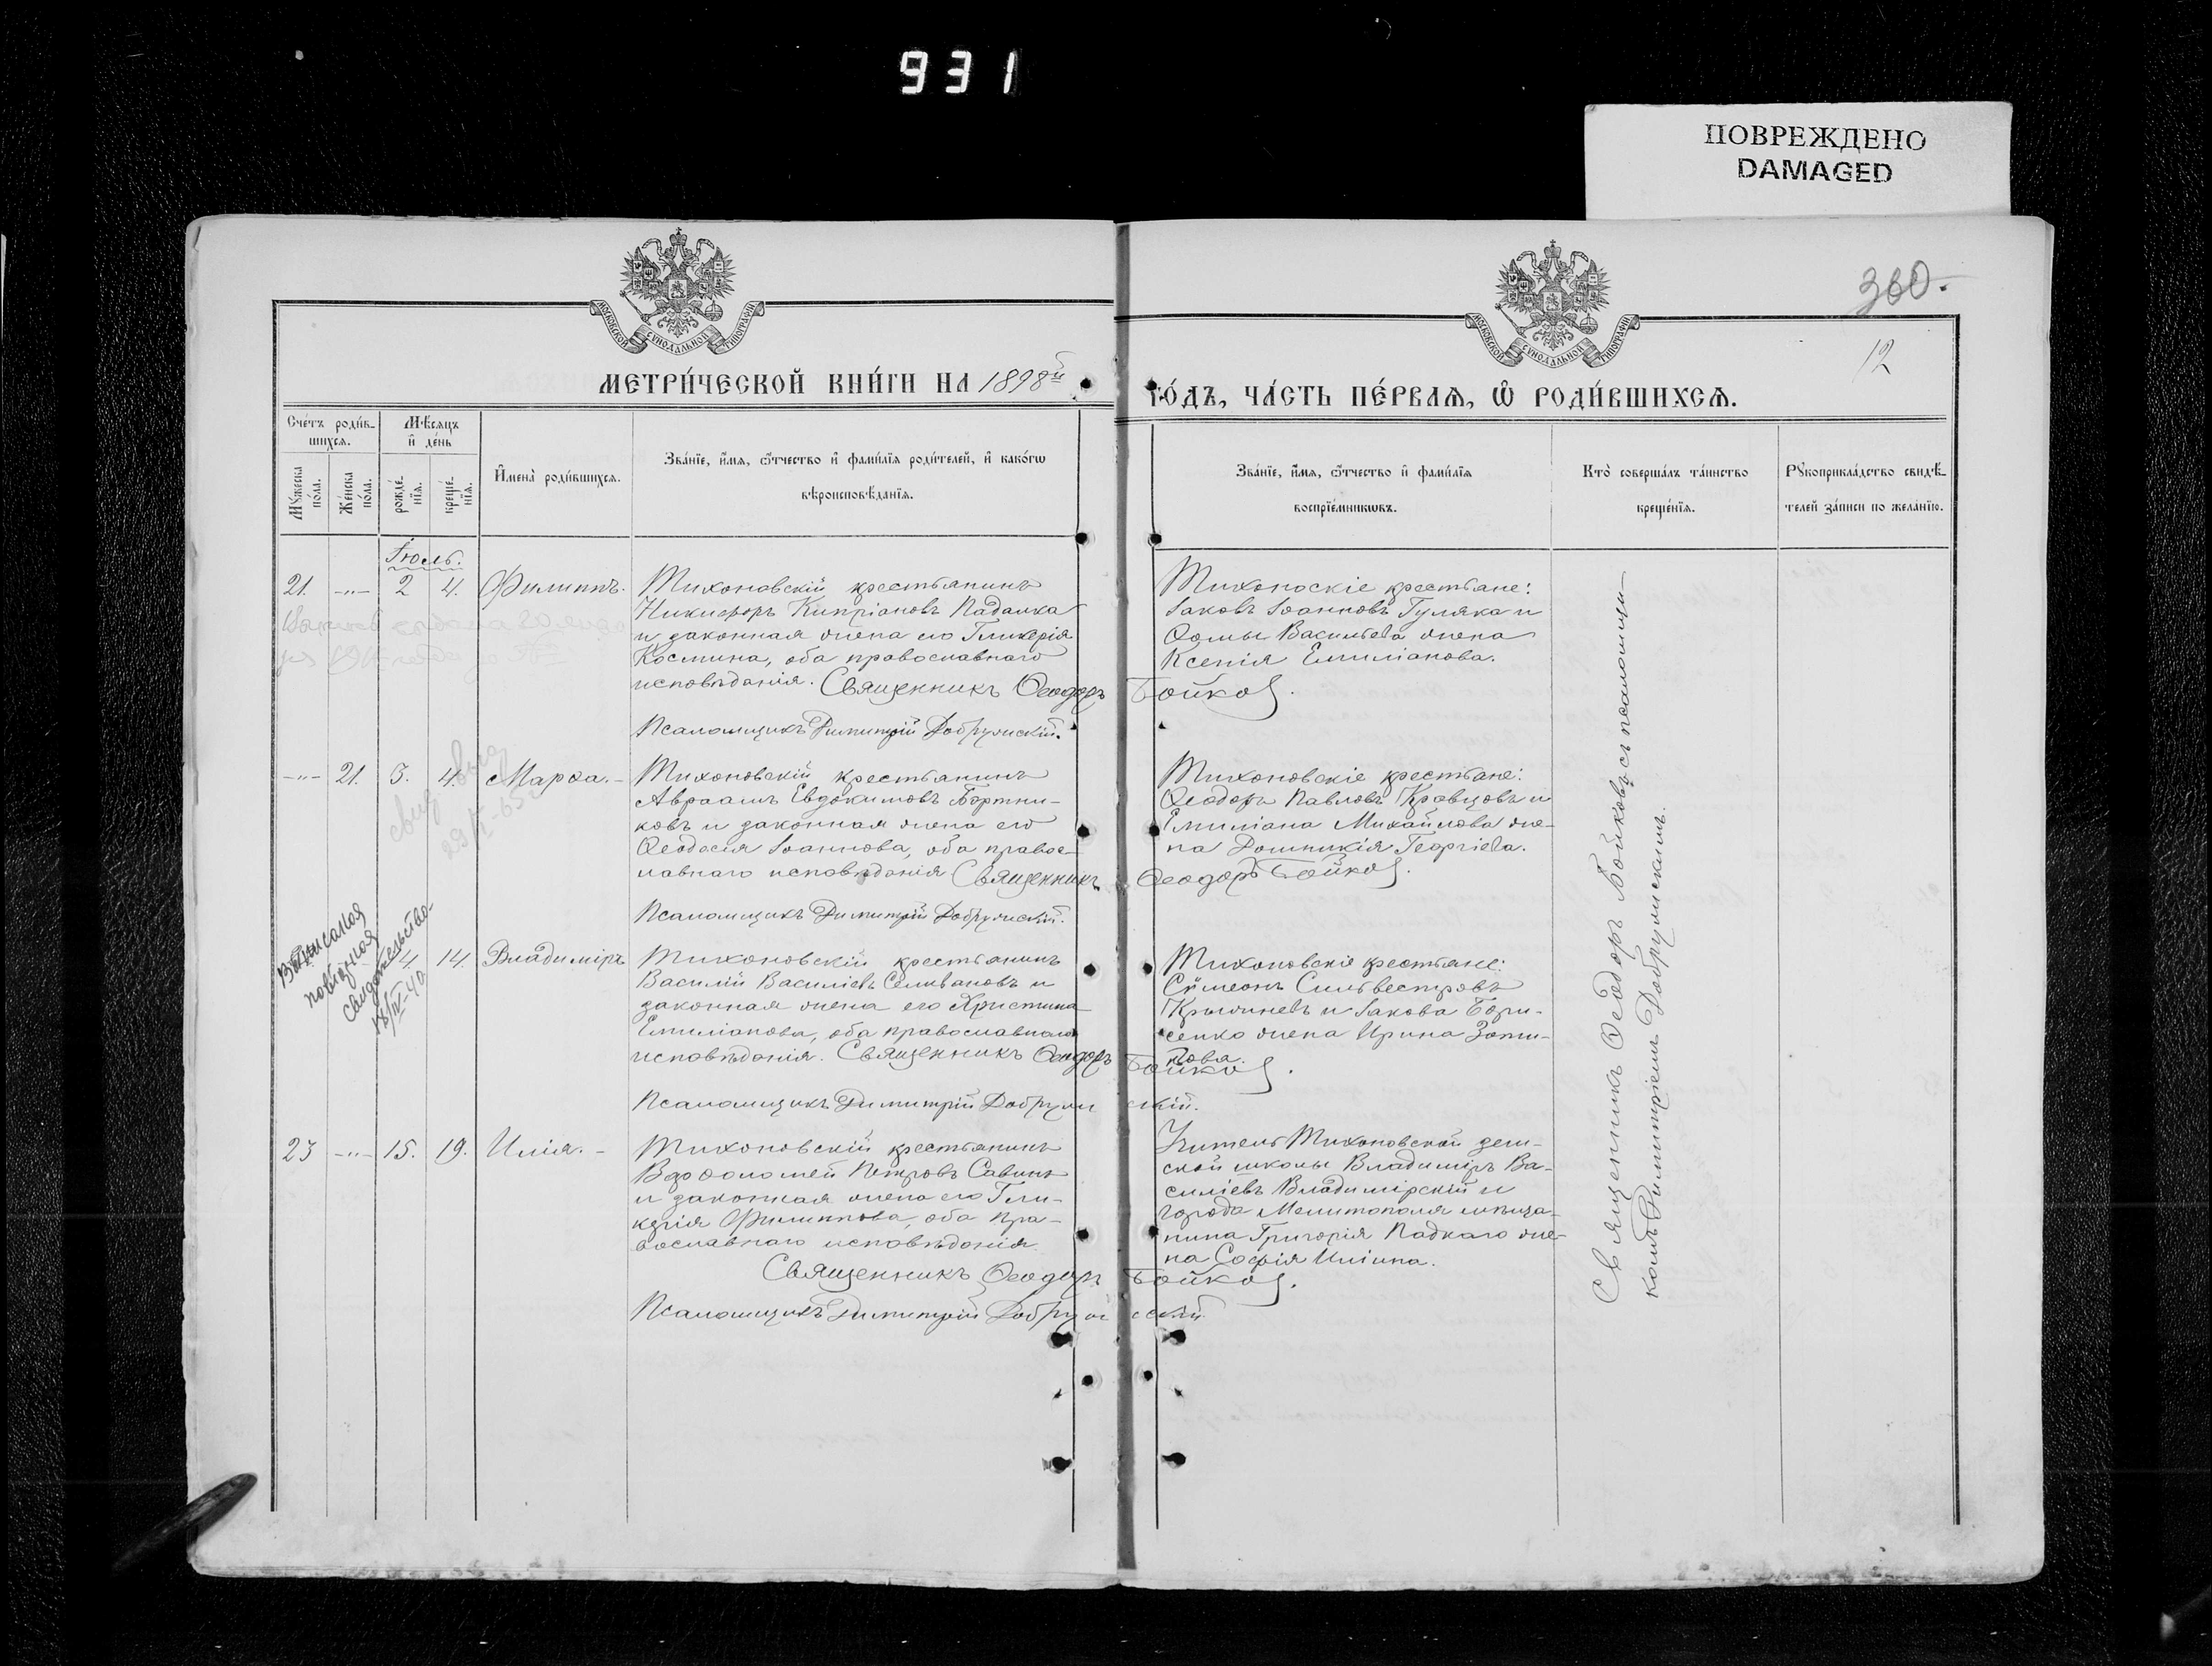 931
ПОВРЕЖДЕНО
DAMAGED
360.
12
МОСКОВСКОЙ СѴНОДАЛЬНОЙ ТИПОГРАФІИ
МОСКОВСКОЙ СѴНОДАЛЬНОЙ ТИПОГРАФІИ
МЕТРИ́ЧЕСКОЙ КНИ́ГИ НА 1898й
ГО́ДЪ, ЧА́СТЬ ПЕ́РВАѦ, Ѽ РОДИ́ВШИХСѦ.
Счетъ роди́в-
шихсѧ.
Мꙋжеска по́ла.
Же́нска по́ла.
Мѣсѧцъ
и҆ де́нь
рожде́-
нїѧ.
креще́-
нїѧ.
И҆мена̀ роди́вшихсѧ.
Зва́нїе, и҆́мѧ, ѻ҆́тчество и҆ фами́лїѧ роди́телей, и҆ како́гѡ
вѣроисповѣ́данїѧ.
Зва́нїе, и҆́мѧ, ѻ҆́тчество и҆ фами́лїѧ
воспрїе́мникѡвъ.
Кто̀ соверша́лъ та́инство
креще́нїѧ.
Рꙋкоприкла́дство свидѣ́-
телей за́писи по жела́нїю.
Іюль.
21. -"- 2 4. Филиппъ.
Тихоновскій крестьянинъ
Никифоръ Кипріановъ Падалка
и законная жена его Гликерія
Космина, оба православнаго
исповѣданія. Священникъ Ѳеодоръ Бойковъ.
Псаломщикъ Димитрій Добружскій.
Тихоноскіе крестьяне:
Іаковъ Іоанновъ Гуляка и
Ѳомы Васильева жена
Ксенія Емиліанова.
-"- 21. 3. 4. Марѳа.-
Тихоновскій крестьянинъ
Авраамъ Евдокимовъ Бортни-
ковъ и законная жена его
Ѳеодосія Іоаннова, оба право-
славнаго исповѣданія Священникъ Ѳеодоръ Бойковъ.
Псаломщикъ Димитрій Добружскій.
Тихоновскіе крестьяне:
Ѳеодоръ Павловъ Кравцовъ и
Емиліана Михайлова же-
на Домникія Георгіева.
Выписаноя
повторная
Свидетельство
18/IV-40
4 14. Владиміръ
Тихоновскій крестьянинъ
Василій Васильевъ Селивановъ и
законная жена его Христина
Емиліанова, оба православнаго
исповѣданія. Священникъ Ѳеодоръ Бойковъ.
Псаломщикъ Димитрій Добружскій.
Тихоновскіе крестьяне:
Сѵмеонъ Сильвестровъ
и Іакова Бори-
сенко жена Ирина Зоти-
кова.
23 -"- 15. 19. Илія.-
Тихоновскій крестьянинъ
Варѳоломей Петровъ Савинъ
и законная жена его Гли-
керія Филиппова, оба пра-
вославнаго исповѣданія
Священникъ Ѳеодоръ Бойковъ.
Псаломщикъ Димитрій Добружскій.
Учитель Тихоновской зем-
ской школы Владиміръ Ва-
силіевъ Владимірскій и
города Мелитополя мѣща-
нина Григорія Падкаго же-
на Софія Иліина.
Священникъ Ѳеодоръ Бойковъ съ псаломщи-
комъ Димитріемъ Добружскимъ.